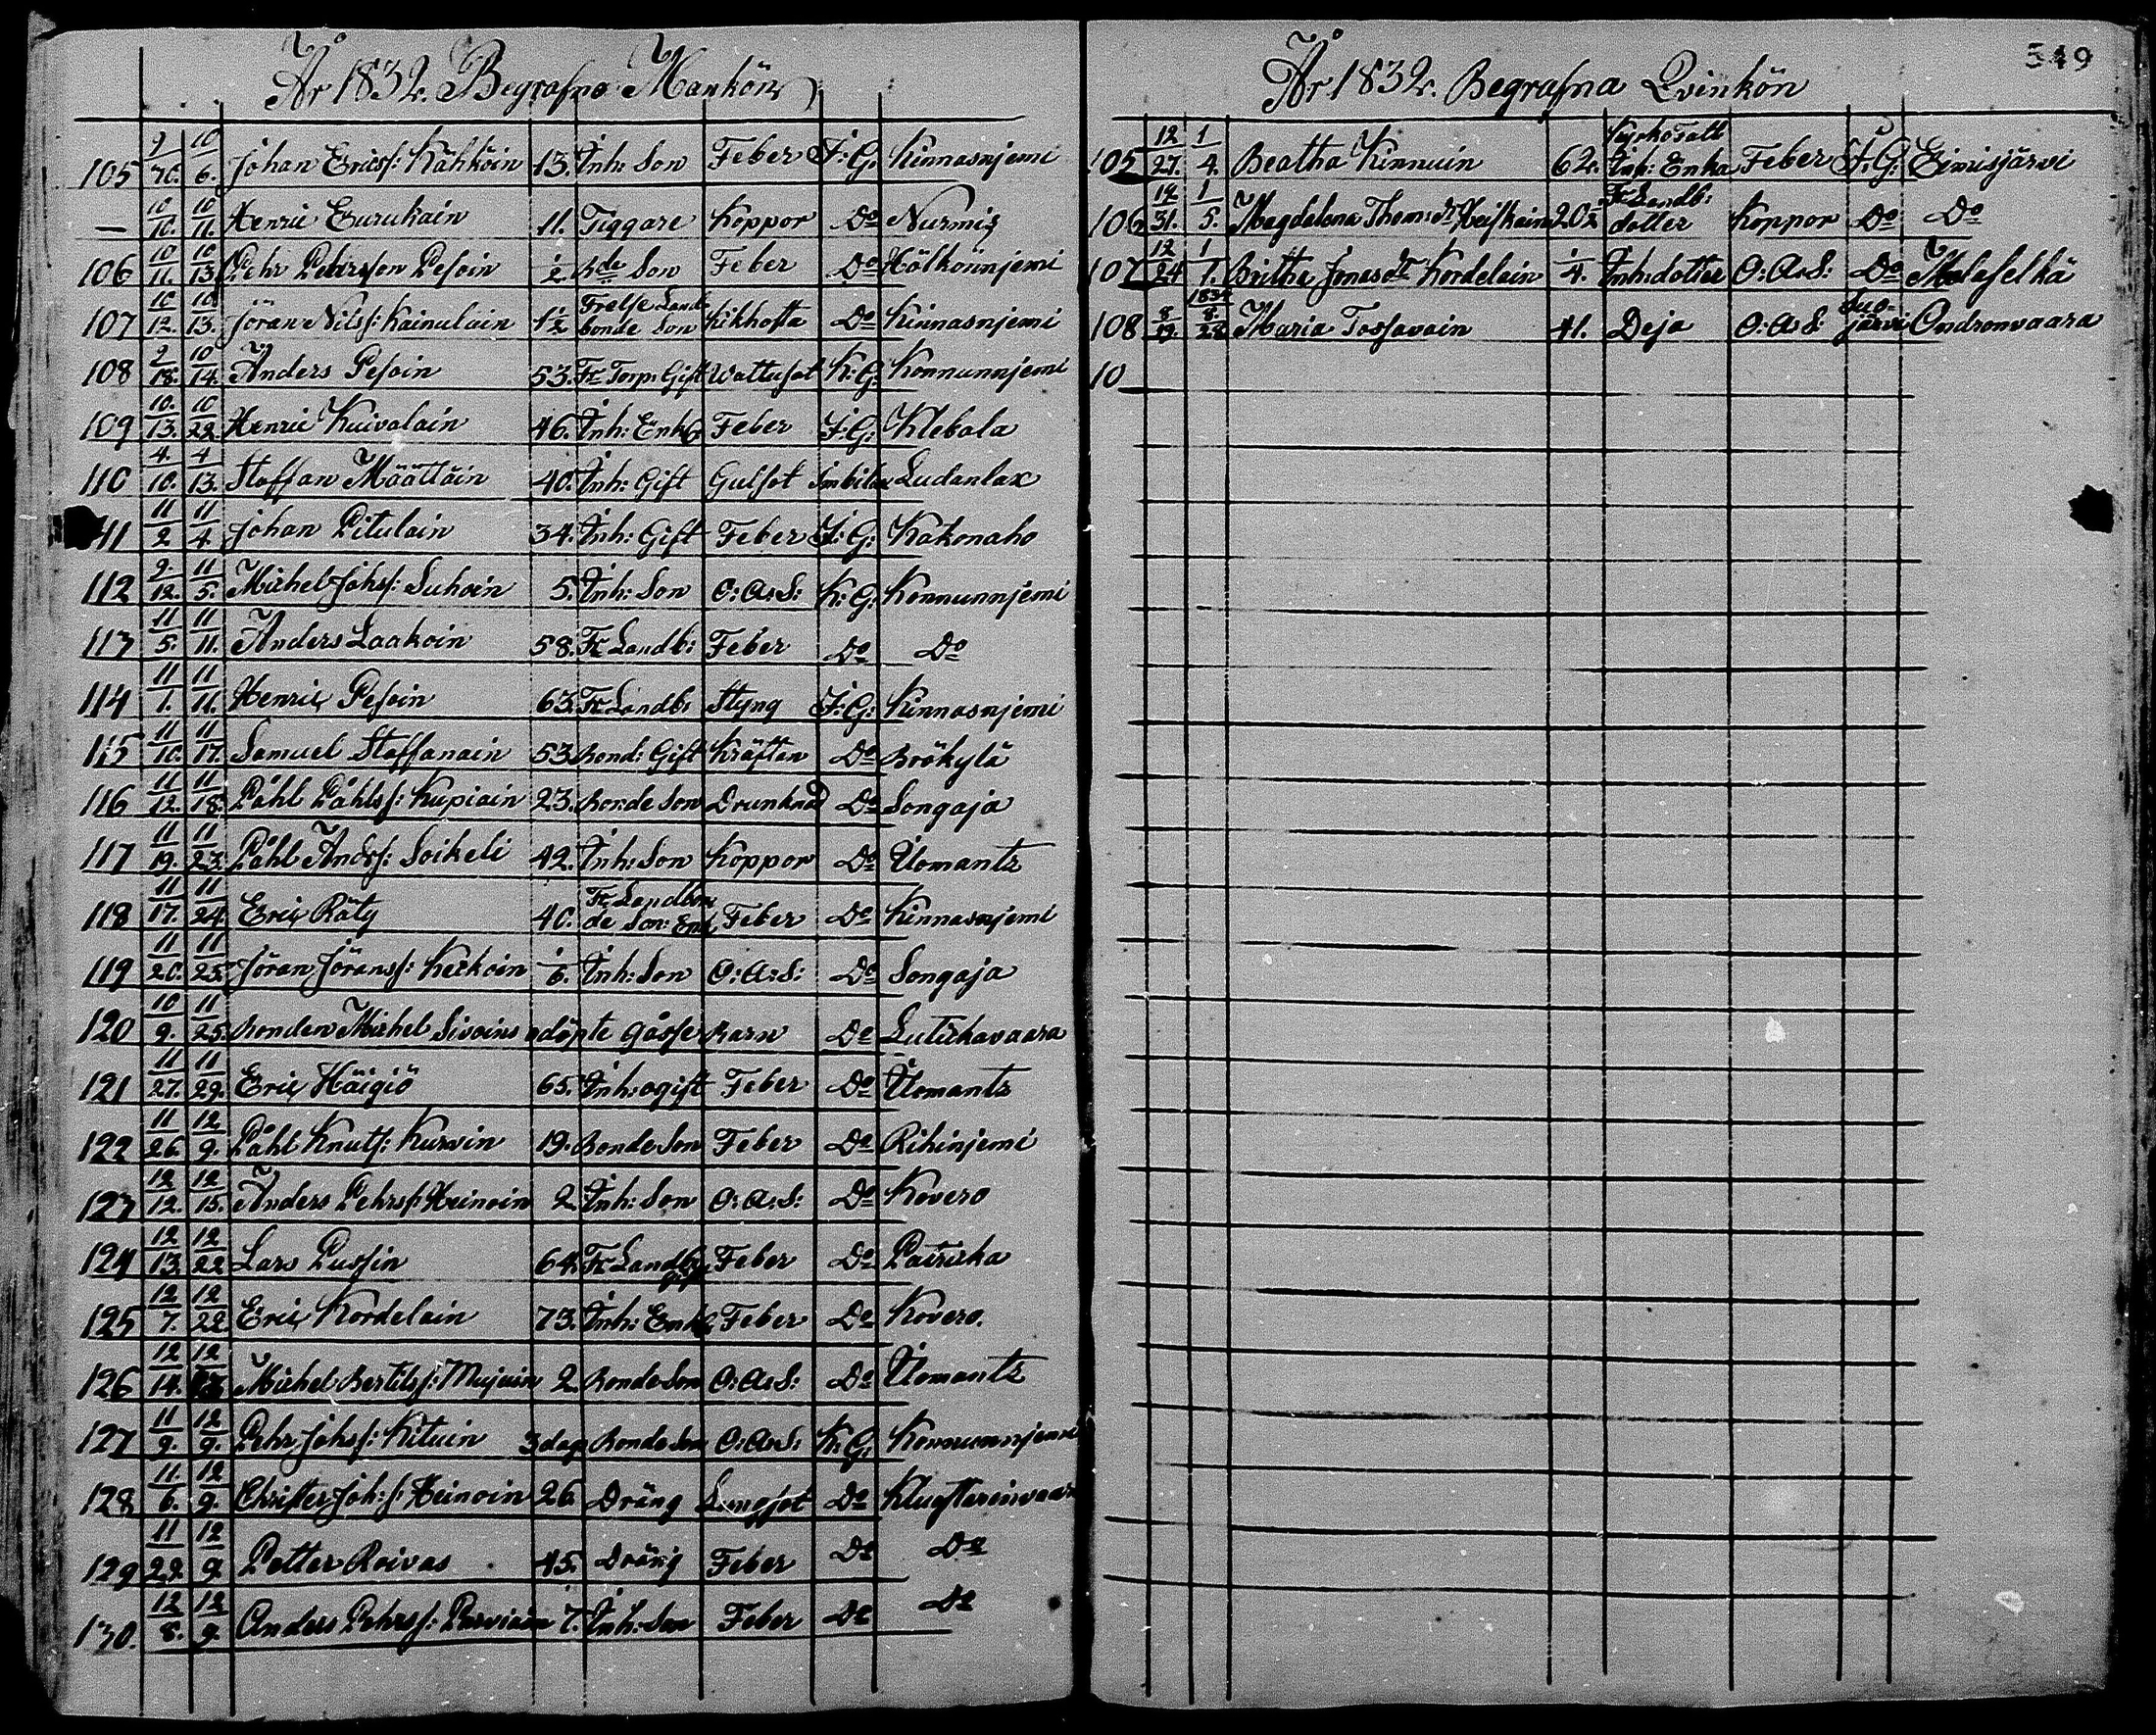 År 1832. Begrafne Mankön
105 9/30. 10/6. Johan Ericsf: Kähköin 13. Inh: Son Feber I: G: Kinnasnjemi
— 10/10. 10/11. Henric Eurukain 11. Tiggare Koppor Do Nurmis
106 10/11. 10/13 Pehr Pehrsson Pesoin 1/2 Bde Son Feber Do Hölkönnjemi
107 10/12. 10/13. Jöran Nilsf: Kainulain 1 1/2 Frelse Land-
bonde Son Kikhosta Do Kinnasnjemi
108 9/18. 10/14. Anders Pesoin 53. Fr Torp: Gift Wattusot K: G: Konnunnjemi
109 10./13. 10/22. Henric Kuivalain 46. Inh: Enkl Feber I: G: Klebola
110 4./10. 4/13. Staffan Määttäin 40. Inh: Gift Gulsot Ludanlax
11/2. 11/4. Johan Pitulain 34. Inh: Gift Feber I: G: Kakonaho
112 9./12. 11/5. Michel Johsf: Suhoin 5. Inh: Son O: A: S: K: G: Konnunnjemi
113 11/5. 11/11. Anders Laakoin 58. Fr Landb: Feber Do Do
114 11/1. 11/11. Henric Pesoin 63. Fr Landb: Styng I: G: Kinnasnjemi
115 11/10. 11/17. Samuel Staffanain 53. Bond: Gift Kräftan Do Brökylä
116 11/12. 11/18. Påhl Påhlsf: Kupiain 23. Bonde Son Drunknad Do Songaja
117 11/19. 11/23. Påhl Andsf: Soikeli 42. Inh: Son Koppor Do Ilomants
118 11/17. 11/24. Eric Räty 40. Fr Landbon
de Son: Enkl Feber Do Kinnasnjemi
119 11/20. 11/25. Jöran Jöransf: Keckoin 1/6. Inh: Son O: A: S: Do Songaja
120 10/9. 11/25. Bonden Michel Sivoins odöpte gosse Barn Do Lutickavaara
121 11/27. 11/29. Eric Häigiö 65. Inh: ogift Feber Do Ilomants
122 11/26. 12/9. Påhl Knutsf: Kurvin 19. Bonde Son Feber Do Rihinjemi
123 12/12. 12/15. Anders Pehrsf: Heinoin 2. Inh: Son O: A: S: Do Kovero
124 12/13. 12/22. Lars Pussin 64. Fr Landb:
gift Feber Do Patricka
125 12/7. 12/22. Eric Kordelain 73. Inh: Enkl Feber Do Kovero.
126 12/14. Michel Bertilsf: Mujuin 2. Bonde Son O: A: S: Do Ilomants
127 11/9. 12/9. Pehr Johsf: Kituin 3 dag Bonde Son O: A: S: K: G: Konnunnjemi
128 11./6. 12/9. Christer Joh: f: Heinoin 26. Dräng Lungsot Do
129 11/29. 12/9. Petter Roivas 45. Dräng Feber Do Do
130. 12/8. 12/9. Anders Pehrsf: Parviain 7. Inh: Son Feber Do Do
349
År 1832. Begrafna Qvinkön
105 12/27. 1/4. Beatha Kinnuin 62. Kyrko Tatt
Inh: Enka Feber I: G: Eimisjärvi
106 12/31. 1/5. Magdalena Thoms: dr Heiskain 20 1/2 Fr Landb:
dotter Koppor Do Do
107 12/24 1/1. Britha Jonasdr Kordelain 1/4. Inh: dotter O: A: S: Do Melaselkä
1834
108 8/19. 8/28 Maria Tossavain 41. Deja O: A: S: Suo-
järvi Ondronvaara
10